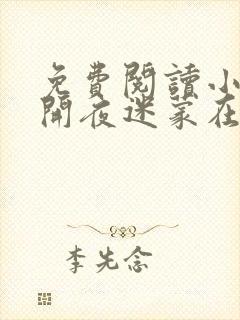 免費閱讀小
開夜迷家在
李先念